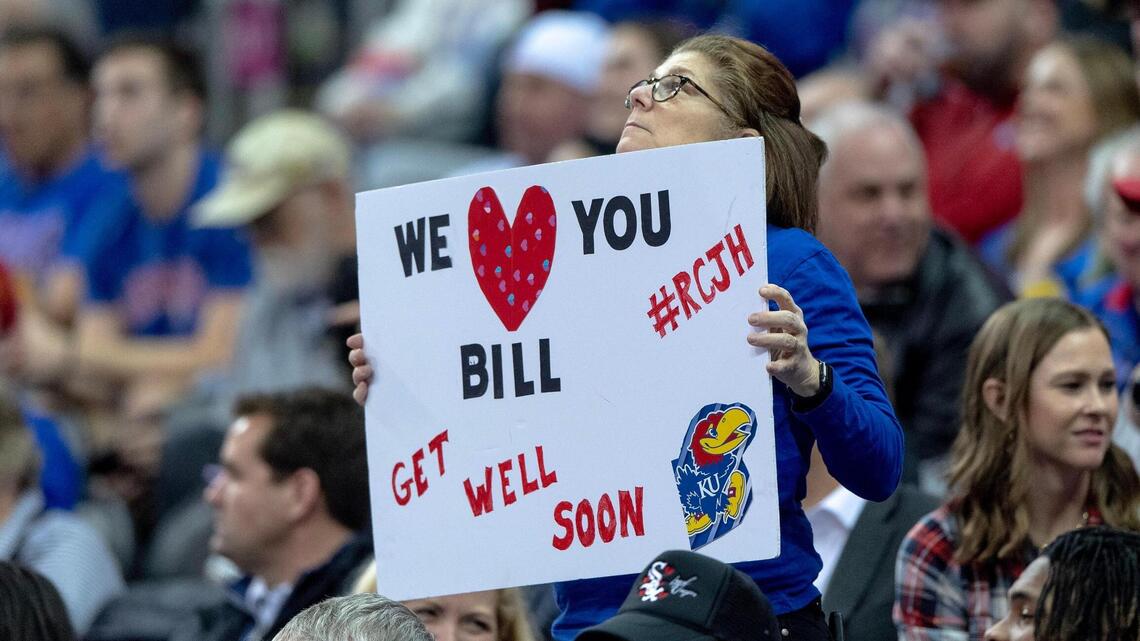 WE ❤ YOU
#RCJH
BILL
GET
WELL
SOON
KU
SOX